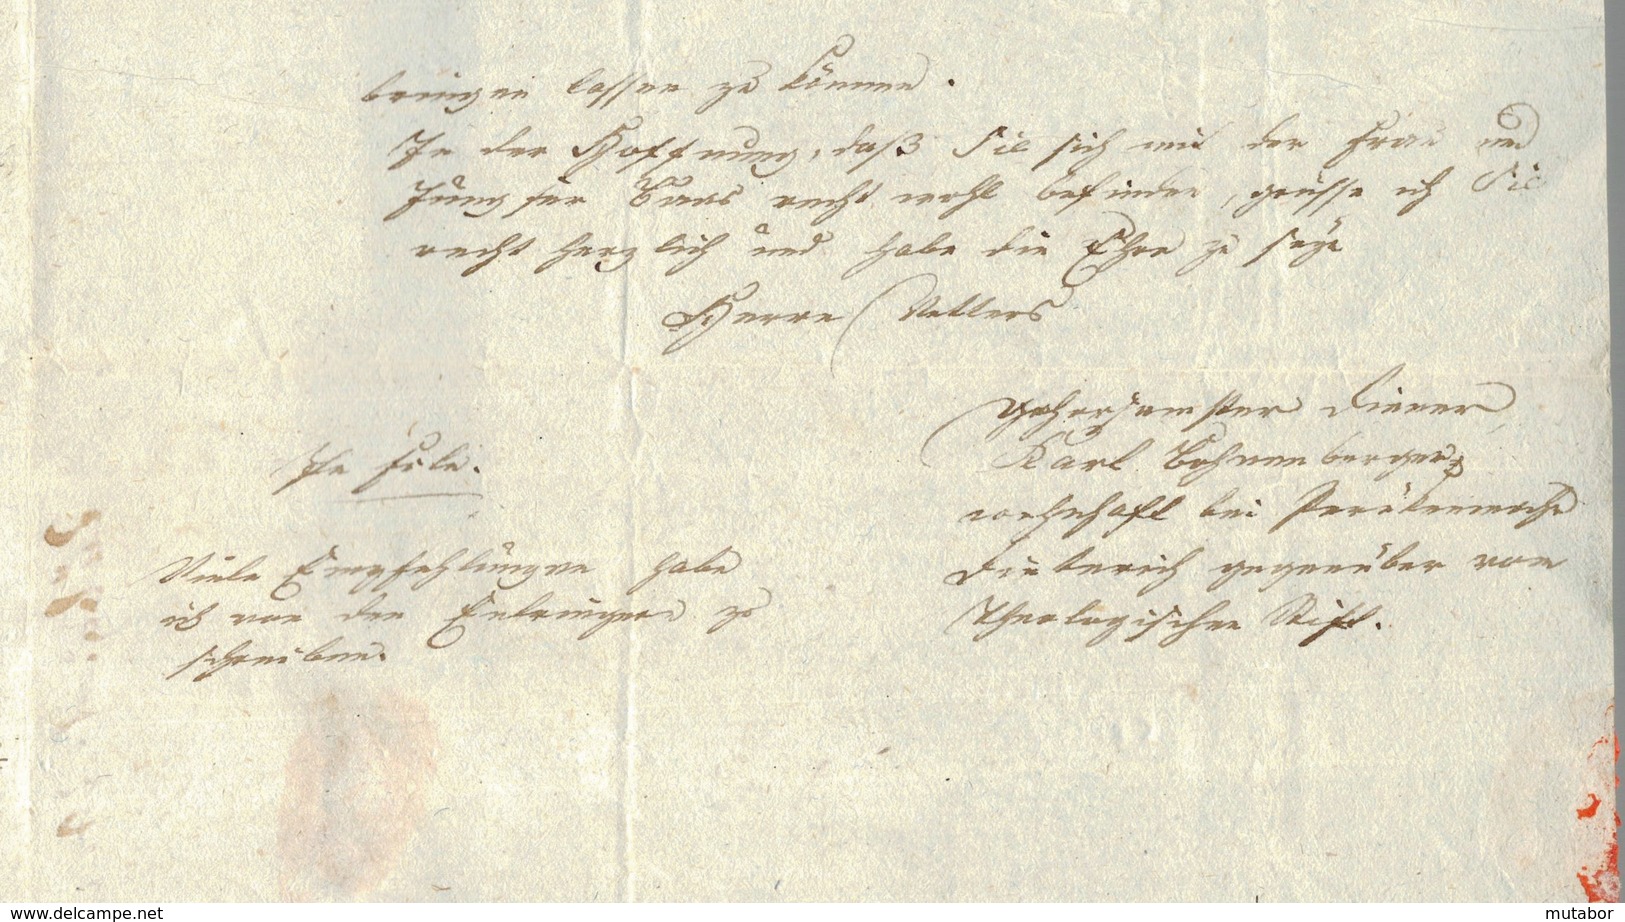 bringen lassen zu können.
In der Hoffnung, daß Sie sich mit der Frau und
Jungfer Baas recht wohl befinden, grüsse ich Sie
recht herzlich und habe die Ehre zu seyn
Herrn Vetters
gehorsamster Diener
Karl Bohnenberger,
wohnhaft bei Perükenmacher
Dieterich gegenüber vom
theologischen Stift.
In Eile.
Viele Empfehlungen habe
ich von den zu
schreiben.
www.delcampe.net
mutabor